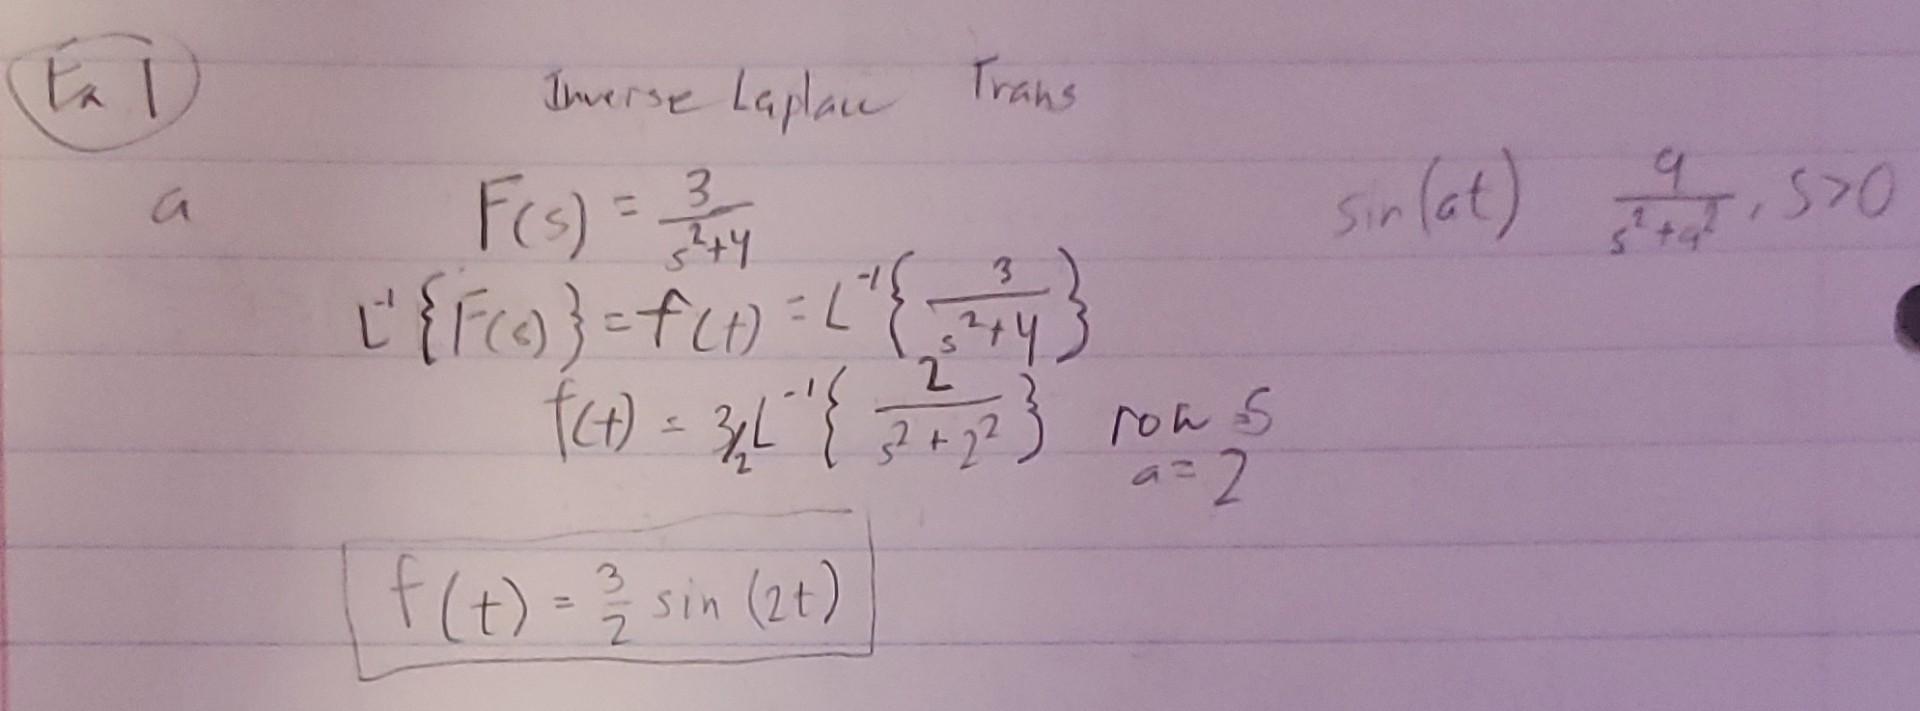 Ex 1 Inverse Laplace Trans
a F(s) = 3/(s²+4) sin(at) a/(s²+a²), s>0
L⁻¹{F(s)} = f(t) = L⁻¹{3/(s²+4)}
f(t) = 3/2 L⁻¹{2/(s²+2²)} row 5
a = 2
f(t) = 3/2 sin(2t)